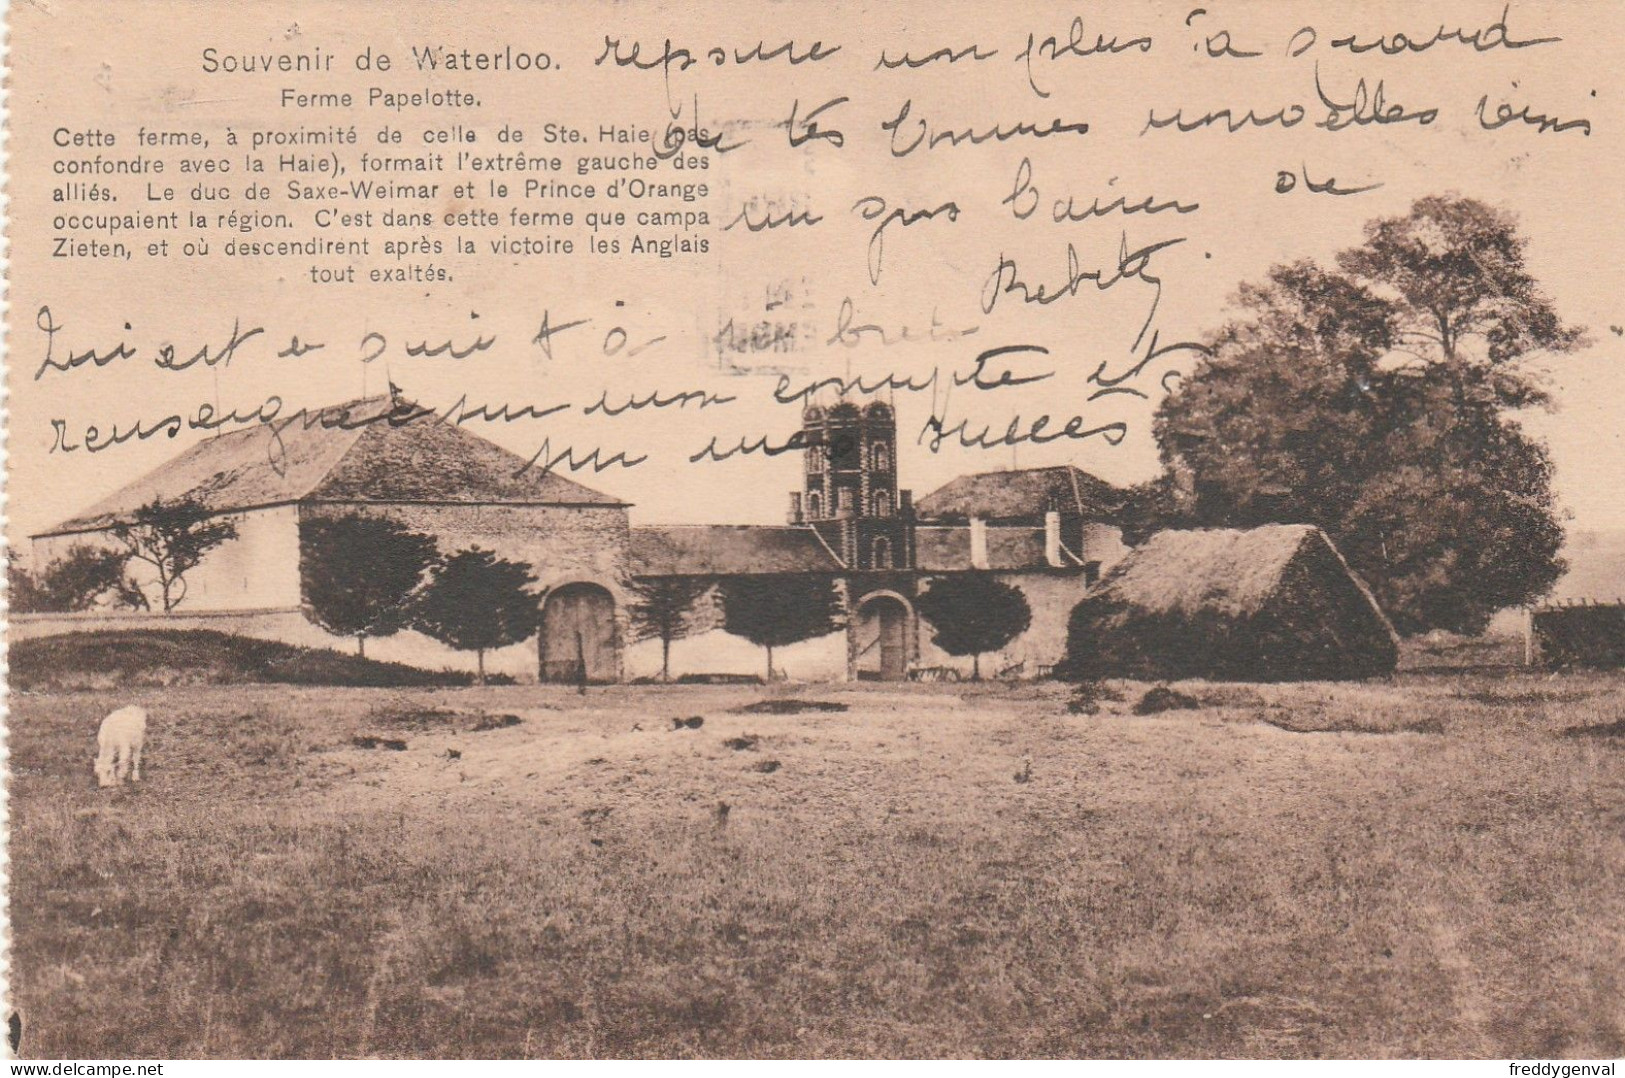 Souvenir de Waterloo.
Ferme Papelotte.
Cette ferme, à proximité de celle de Ste. Haie (pas
confondre avec la Haie), formait l'extrême gauche des
alliés. Le duc de Saxe-Weimar et le Prince d'Orange
occupaient la région. C'est dans cette ferme que campa
Zieten, et où descendirent après la victoire les Anglais
tout exaltés.
un plus à quand
de tes bonnes nouvelles
un gros baiser de
Qui est
renseignée sur mon compte et
sur mes succès
freddygenval